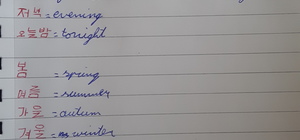 저녁 = evening
오늘밤 = tonight
봄 = spring
여름 = summer
가을 = autum
겨울 = winter